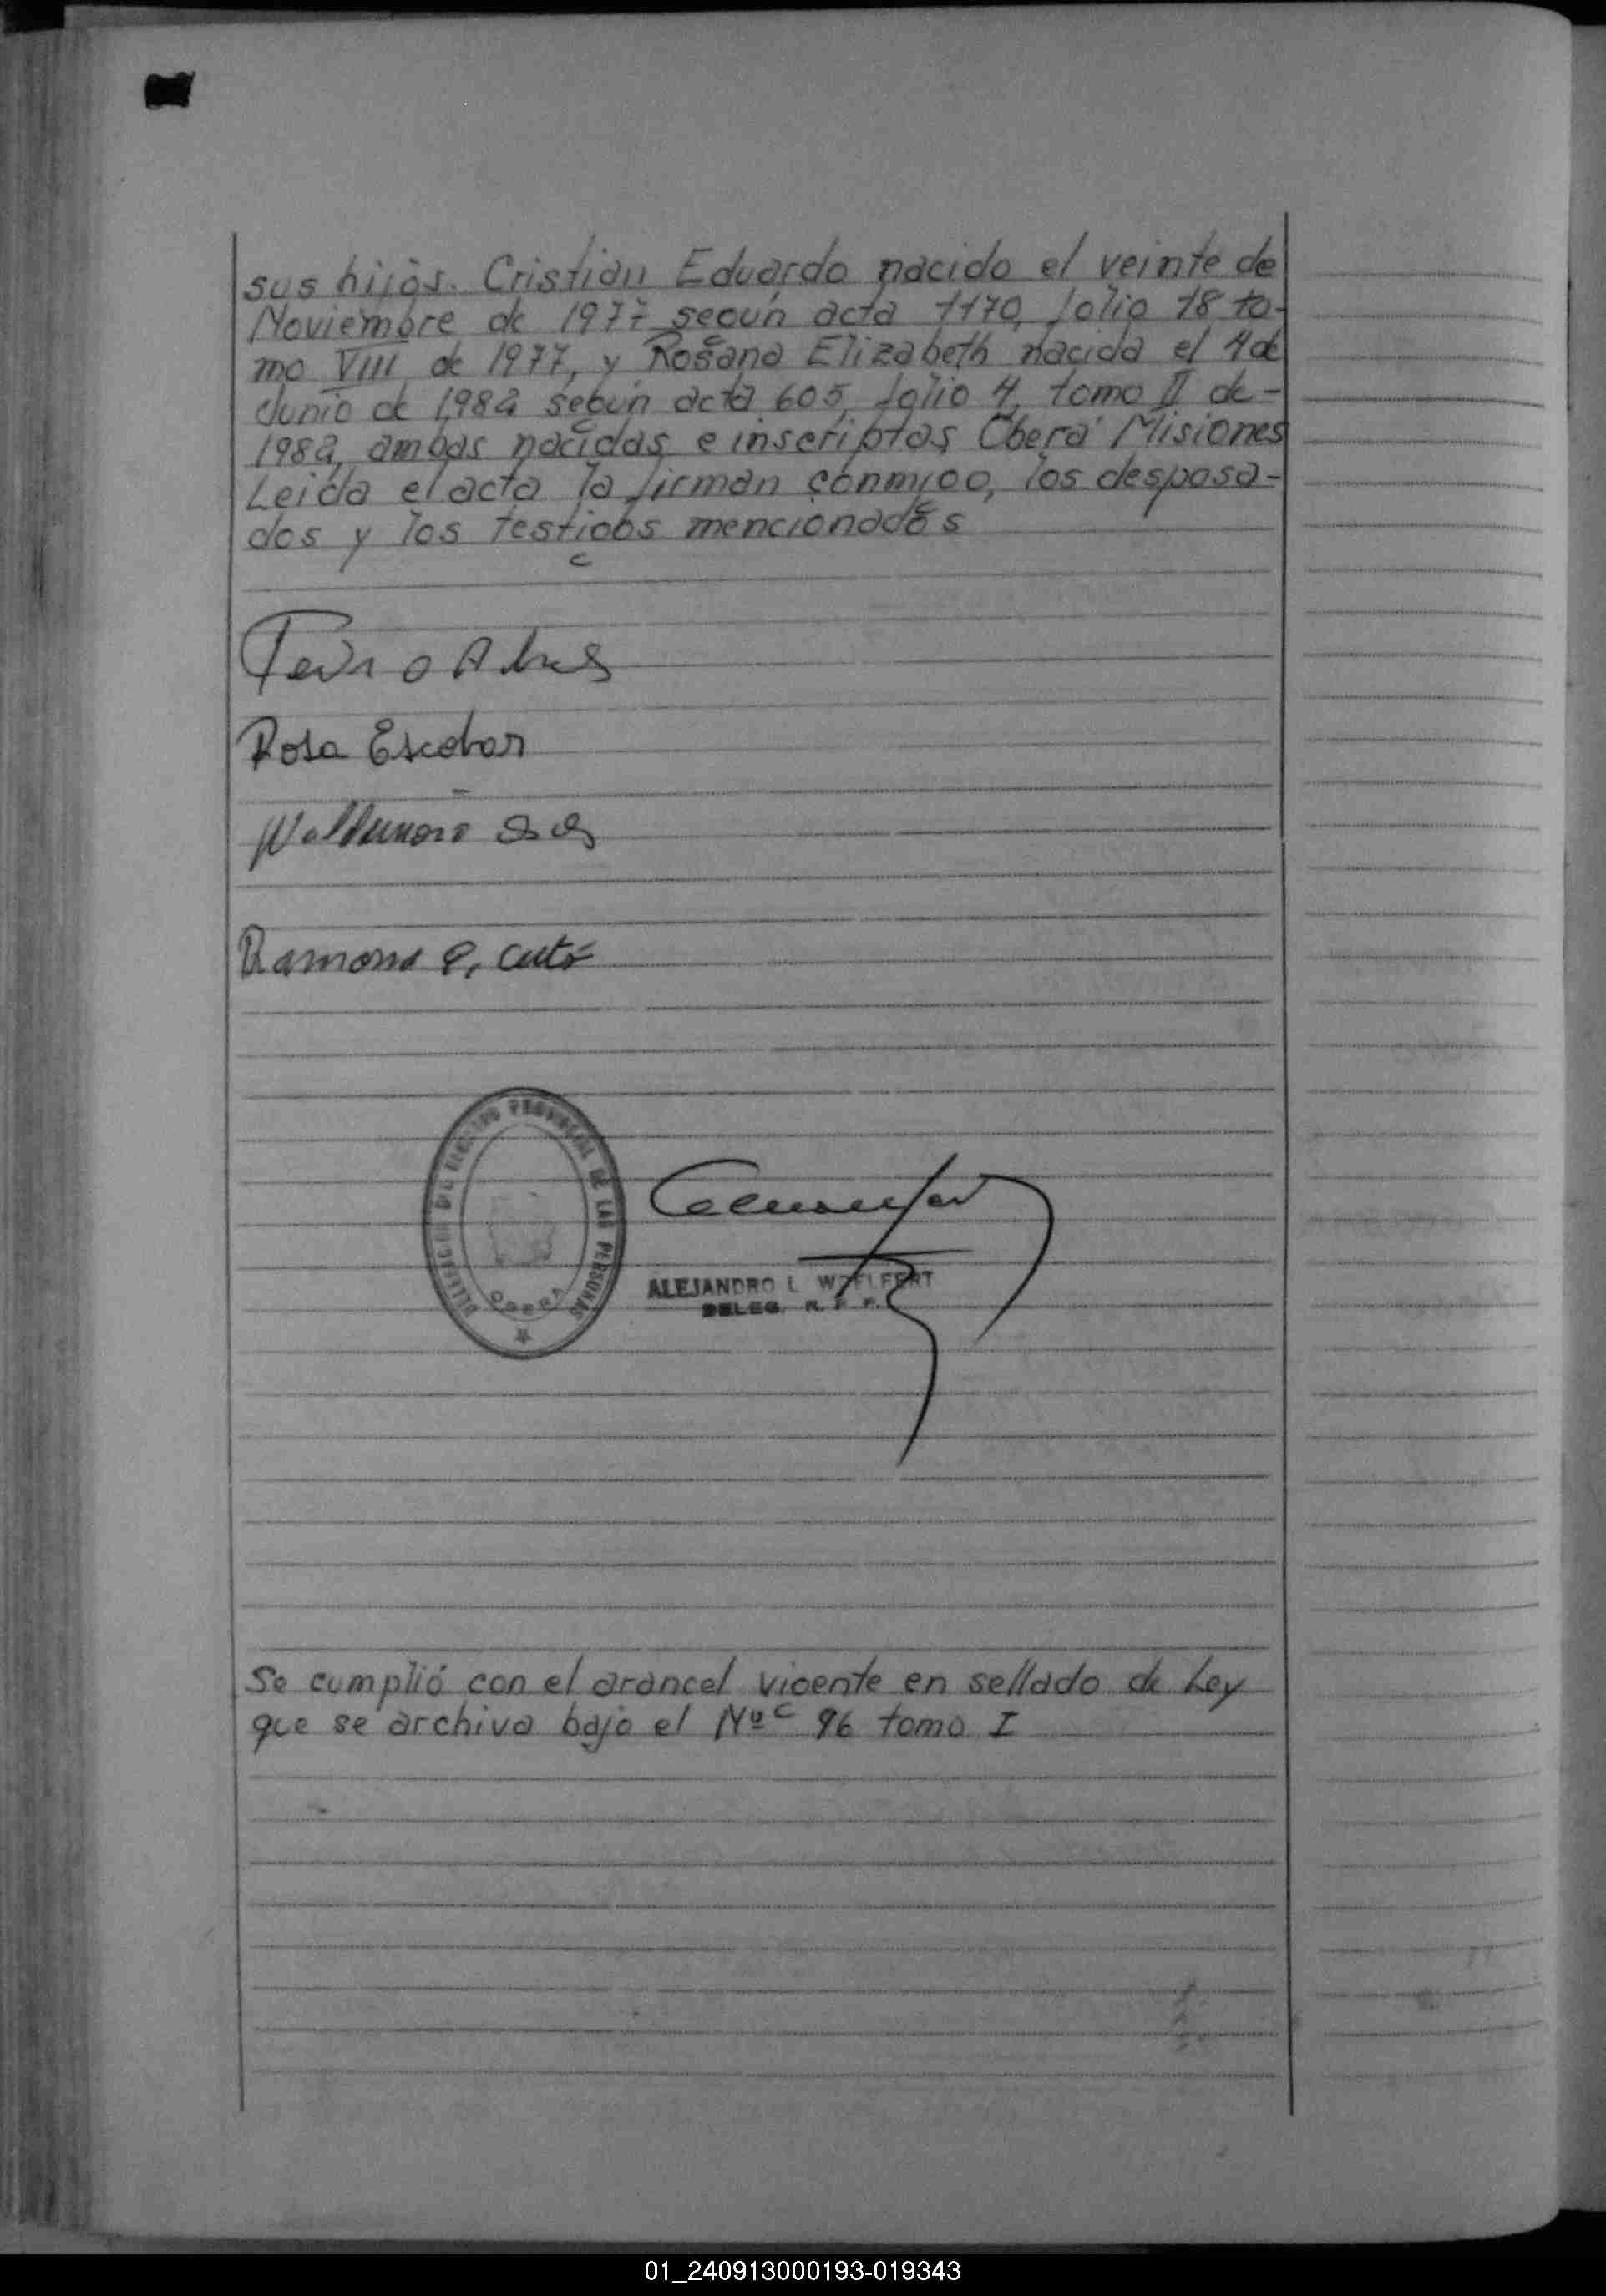 sus hijos. Cristian Eduardo nacido el veinte de
Noviembre de 1977 según acta 1170, folio 18 to-
mo VIII de 1977, y Rosana Elizabeth nacida el 4 de
Junio de 1982 según acta 605, folio 4, tomo II de-
1982, ambas nacidas e inscriptas Oberá Misiones
Leida el acta la firman conmigo, los desposa-
dos y los testigos mencionados
Pedro Alves
Rosa Escobar
Ramona
DELEGACION DEL REGISTRO PROVINCIAL DE LAS PERSONAS
OBERA
ALEJANDRO L. WOELFERT
DELEG. R. P. P.
Se cumplió con el arancel vigente en sellado de Ley
que se archiva bajo el Nº 96 tomo I
01_240913000193-019343